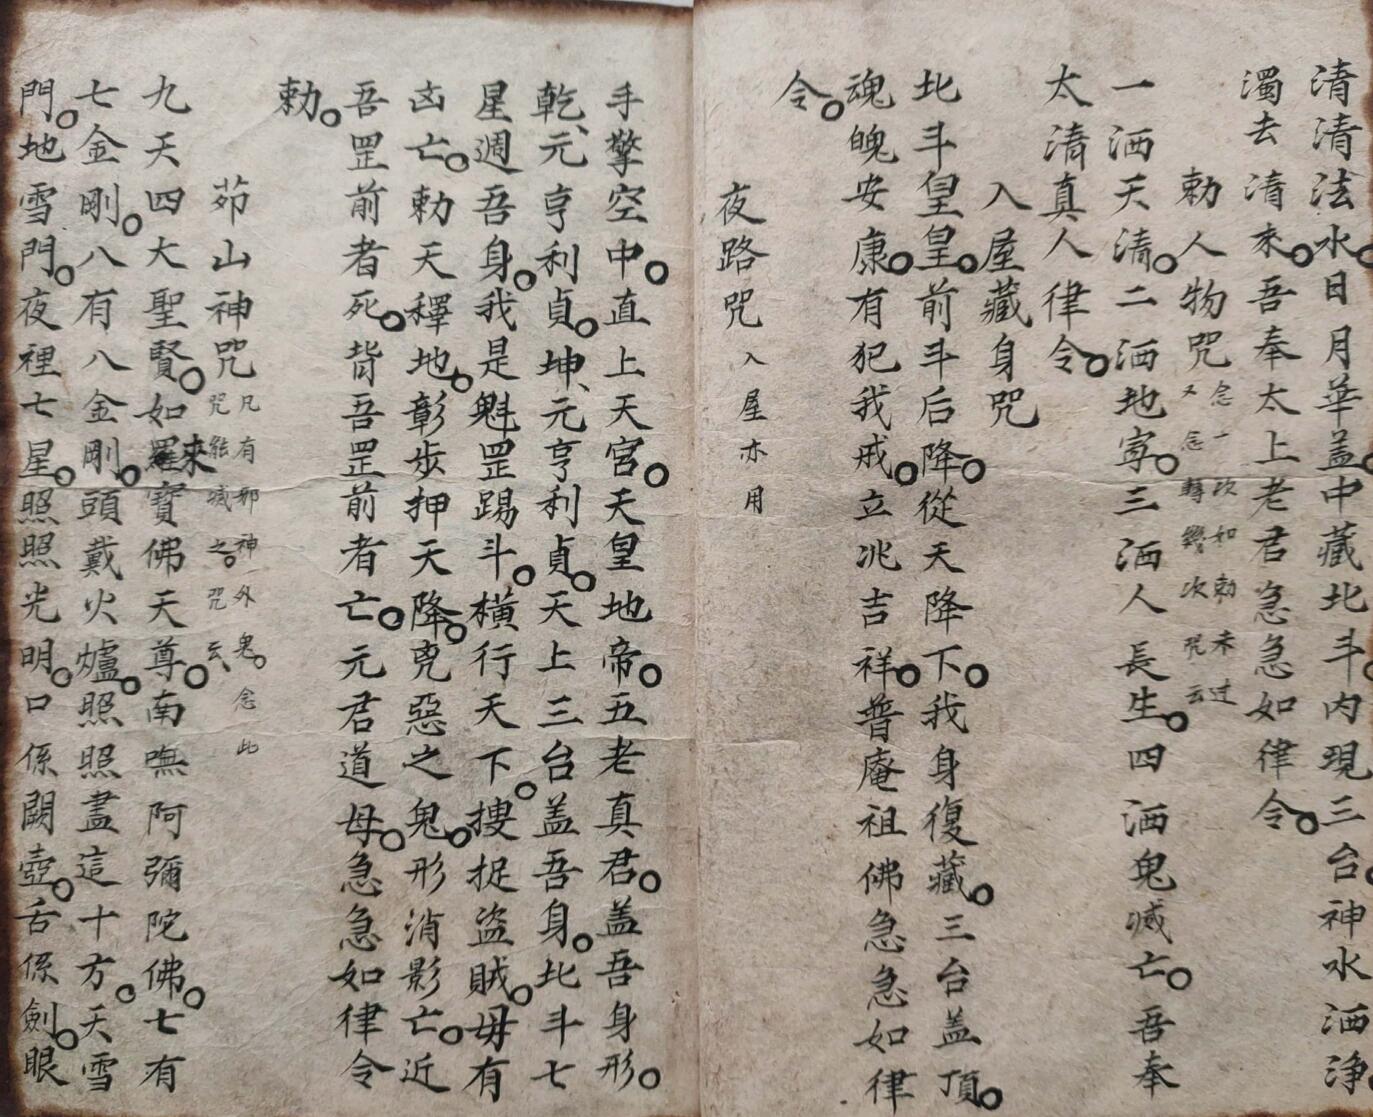 清清法水。日月華盖。中藏北斗。内現三台。神水洒淨。
濁去清來。吾奉太上老君急急如律令。
勅人物咒 念一次如勅未过
又念轉幾次咒云
一洒天清。二洒地寧。三洒人長生。四洒鬼滅亡。吾奉
太清真人律令。
入屋藏身咒
北斗皇皇。前斗后降。從天降下。我身復藏。三台盖頂。
魂魄安康。有犯我戒。立兆吉祥。普庵祖佛急急如律
令。
夜路咒 入屋亦用
手擎空中。直上天宮。天皇地帝。五老真君。盖吾身形。
乾、元亨利貞。坤、元亨利貞。天上三台盖吾身。北斗七
星週吾身。我是魁罡踢斗。橫行天下。搜捉盜賊。毋有
凶亡。勅天釋地。彰步押天降。兇惡之鬼。形消影亡。近
吾罡前者死。背吾罡前者亡。元君道母。急急如律令
勅。
茆山神咒 凡有邪神外鬼。念此
咒能滅之。咒云、
九天四大聖賢。如來寶佛天尊。南嘸阿彌陀佛。七有
七金剛。八有八金剛。頭戴火爐。照照盡這十方。天雪
門。地雪門。夜裡七星。照照光明。口係闕壺。舌係劍。眼